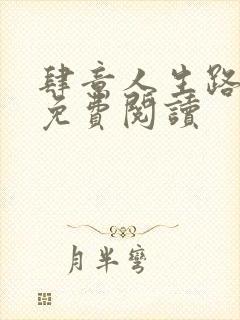 肆意人生路
免費閱讀
月半彎